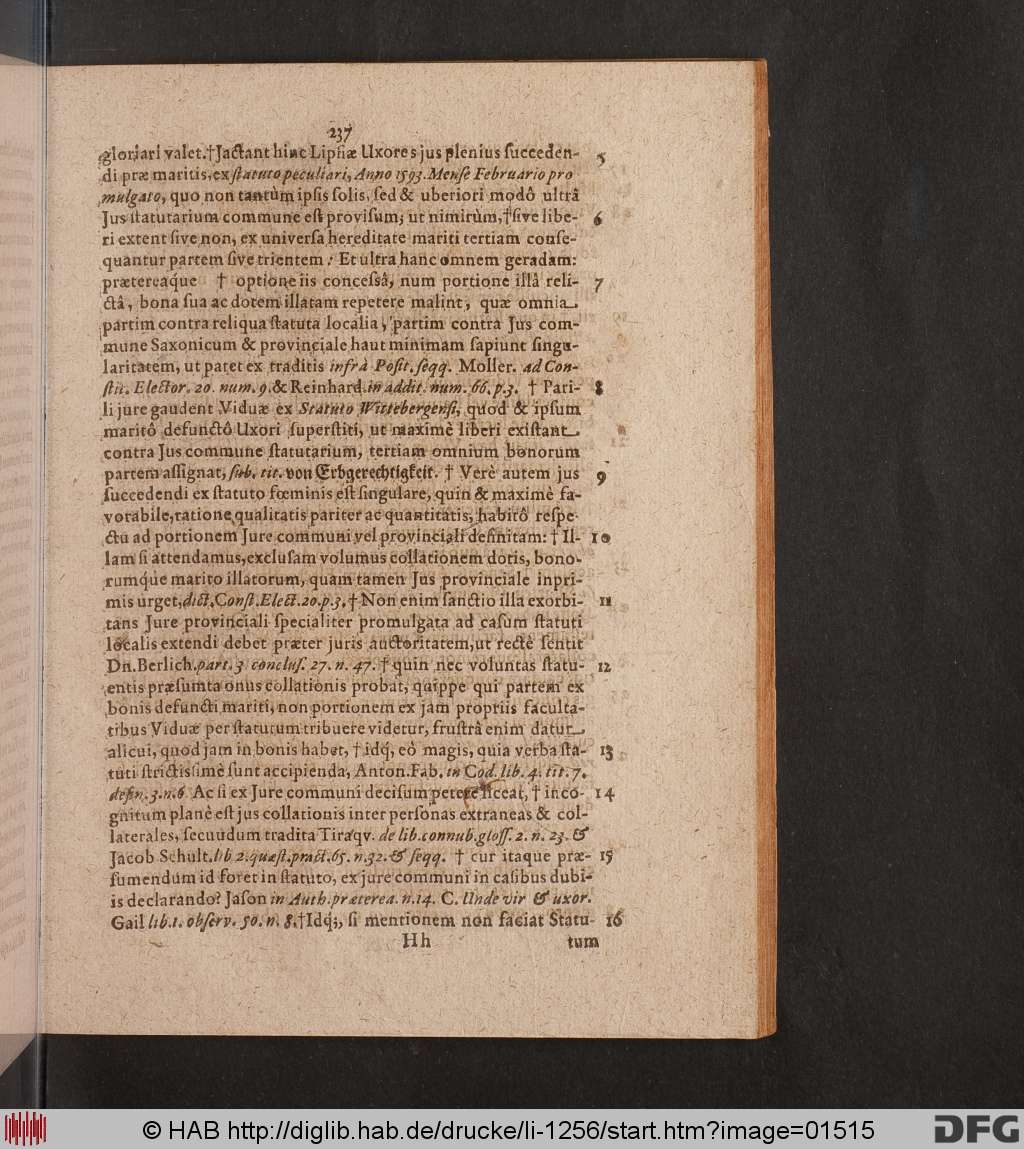 237
gloriari valet.†Jactant hinc Lipſiæ Uxores jus plenius ſucceden- 5
di præ maritis, ex ſtatuto peculiari, Anno 1593. Menſe Februario pro
mulgato, quo non tantùm ipſis ſolis, ſed & uberiori modô ultrâ
Jus ſtatutarium commune eſt proviſum; ut nimirùm,†ſive libe- 6
ri extent ſive non, ex univerſa hereditate mariti tertiam conſe-
quantur partem ſive trientem: Et ultra hanc omnem geradam:
prætereaq́ue † optione iis conceſsâ, num portione illâ reli- 7
ctâ, bona ſua ac dotem illatam repetere malint, quæ omnia
partim contra reliqua ſtatuta localia, partim contra Jus com-
mune Saxonicum & provinciale haut minimam ſapiunt ſingu-
laritatem, ut patet ex traditis infrà Poſit. ſeqq. Moller. ad Con-
ſtit. Elector. 20. num. 9. & Reinhard. in addit. num. 66. p. 3. † Pari- 8
li jure gaudent Viduæ ex Statuto Wittebergenſi, quod & ipſum
maritô defunctô Uxori ſuperſtiti, ut maximè liberi exiſtant
contra Jus commune ſtatutarium, tertiam omnium bonorum
partem aſſignat, ſub. tit. von Erbgerechtigkeit. † Verè autem jus 9
ſuccedendi ex ſtatuto fœminis eſt ſingulare, quin & maximè fa-
vorabile, ratione qualitatis pariter ac quantitatis, habitô reſpe-
ctu ad portionem Jure communi vel provinciali definitam: † Il- 10
lam ſi attendamus, excluſam volumus collationem dotis, bono-
rumq́ue marito illatorum, quam tamen Jus provinciale inpri-
mis urget, dict. Conſt. Elect. 20. p. 3. † Non enim ſanctio illa exorbi- 11
tans Jure provinciali ſpecialiter promulgata ad caſum ſtatuti
localis extendi debet præter juris auctoritatem, ut rectè ſentit
Dn. Berlich. part. 3 concluſ. 27. n. 47. † quin nec voluntas ſtatu- 12
entis præſumta onus collationis probat, quippe qui partem ex
bonis defuncti mariti, non portionem ex jam propriis faculta-
tibus Viduæ per ſtatutum tribuere videtur, fruſtrà enim datur
alicui, quod jam in bonis habet, † idq́, eô magis, quia verba ſta- 13
tuti ſtrictiſſimè ſunt accipienda, Anton. Fab. in Cod. lib. 4. tit. 7.
defin. 3. n. 6 Ac ſi ex Jure communi deciſum petere liceat, † inco- 14
gnitum planè eſt jus collationis inter perſonas extraneas & col-
laterales, ſecuudum tradita Tiraqv. de lib. connub. gloſſ. 2. n. 23. &
Jacob Schult. lib 2. quæſt. pract. 65. n. 32. & ſeqq. † cur itaque præ- 15
ſumendum id foret in ſtatuto, ex jure communi in caſibus dubi-
is declarando? Jaſon in Auth. præterea. n. 14. C. Unde vir & uxor.
Gail lib. 1. obſerv. 50. n. 8. †Idq́;, ſi mentionem non faciat Statu- 16
Hh tum
© HAB http://diglib.hab.de/drucke/li-1256/start.htm?image=01515
DFG